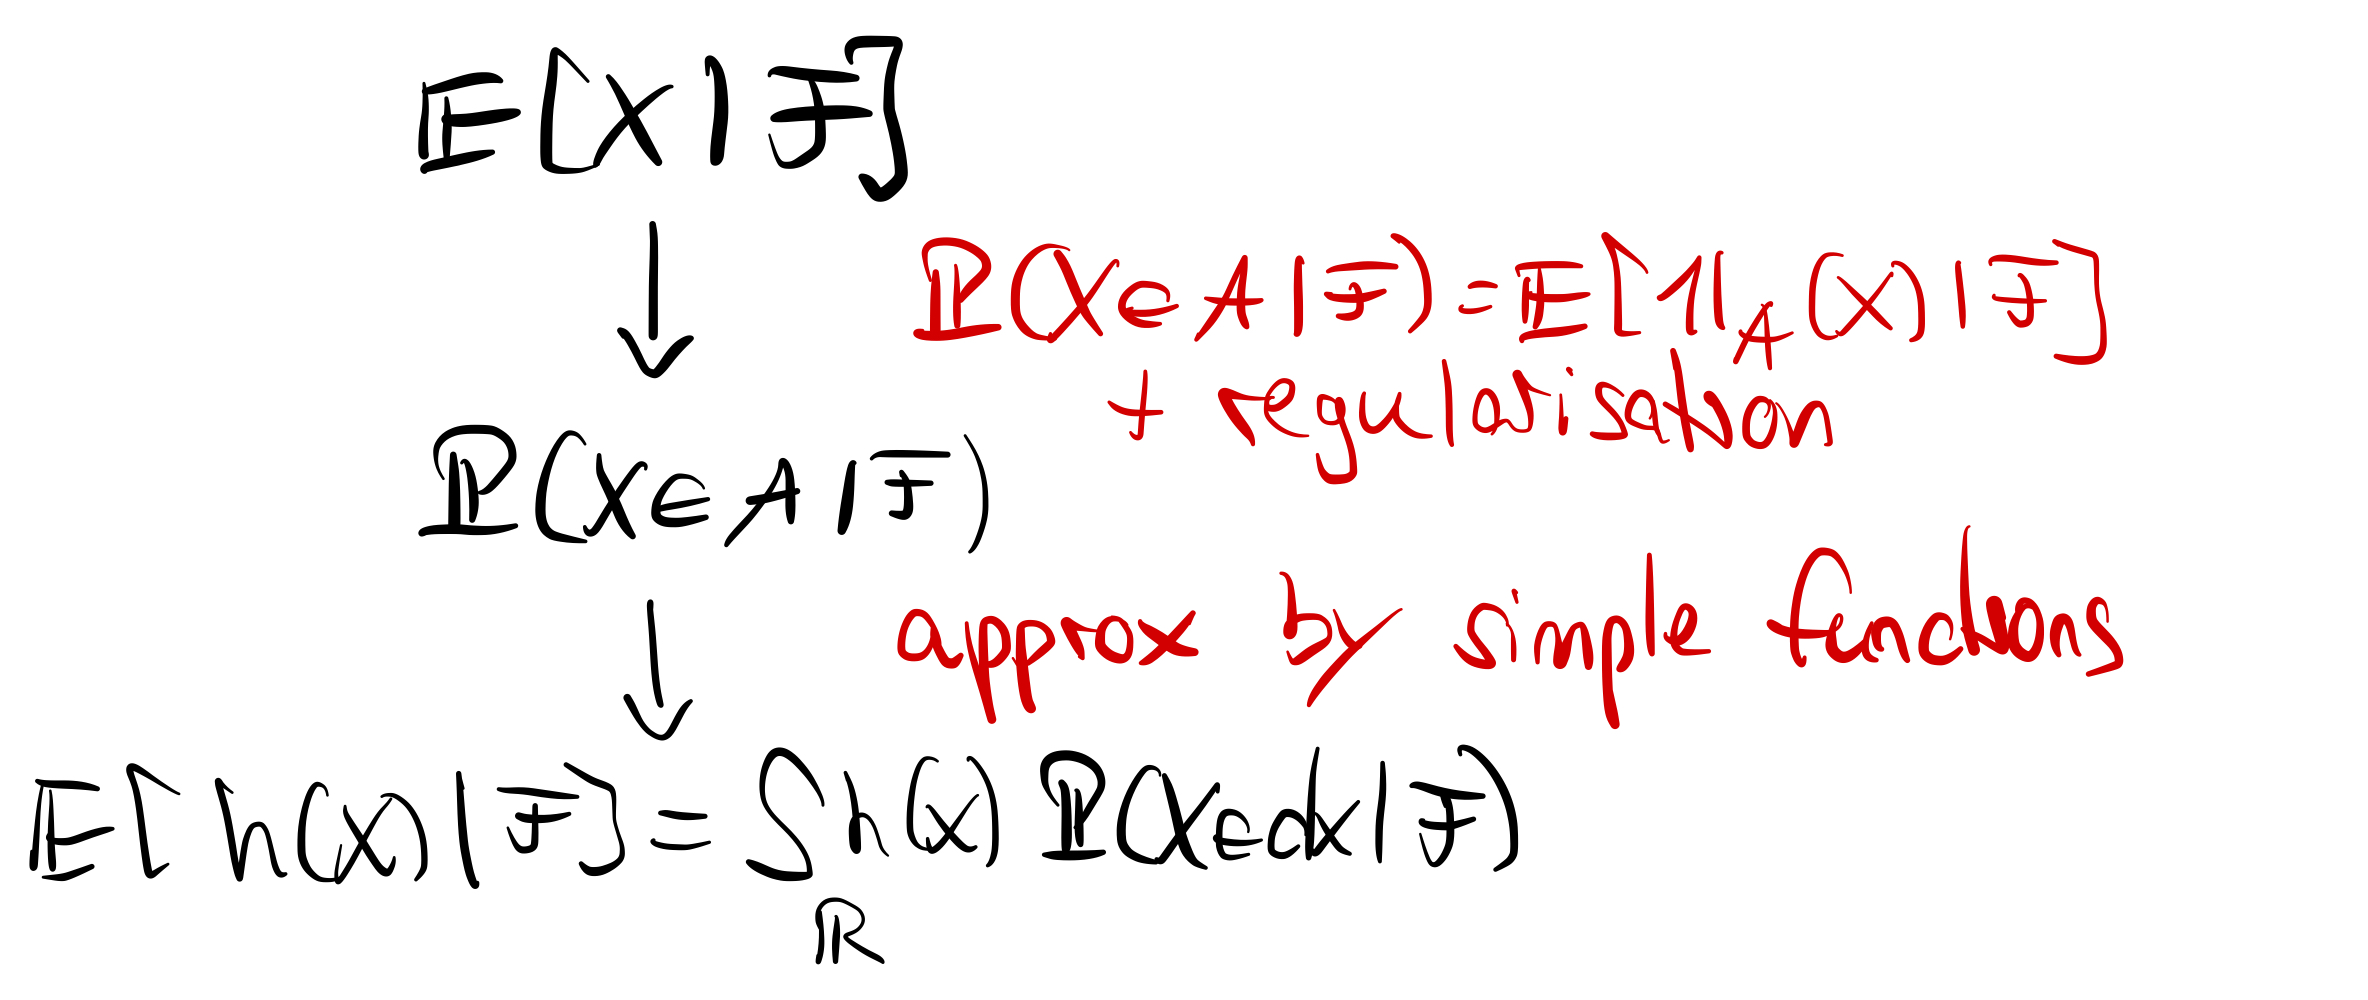 𝔼[X|ℱ]
↓
ℙ(X∈A|ℱ)=𝔼[𝟙_A(X)|ℱ]
+ regularisation
ℙ(X∈A|ℱ)
↓
approx by simple functions
𝔼[h(X)|ℱ]=∫_ℝ h(x) ℙ(X∈dx|ℱ)